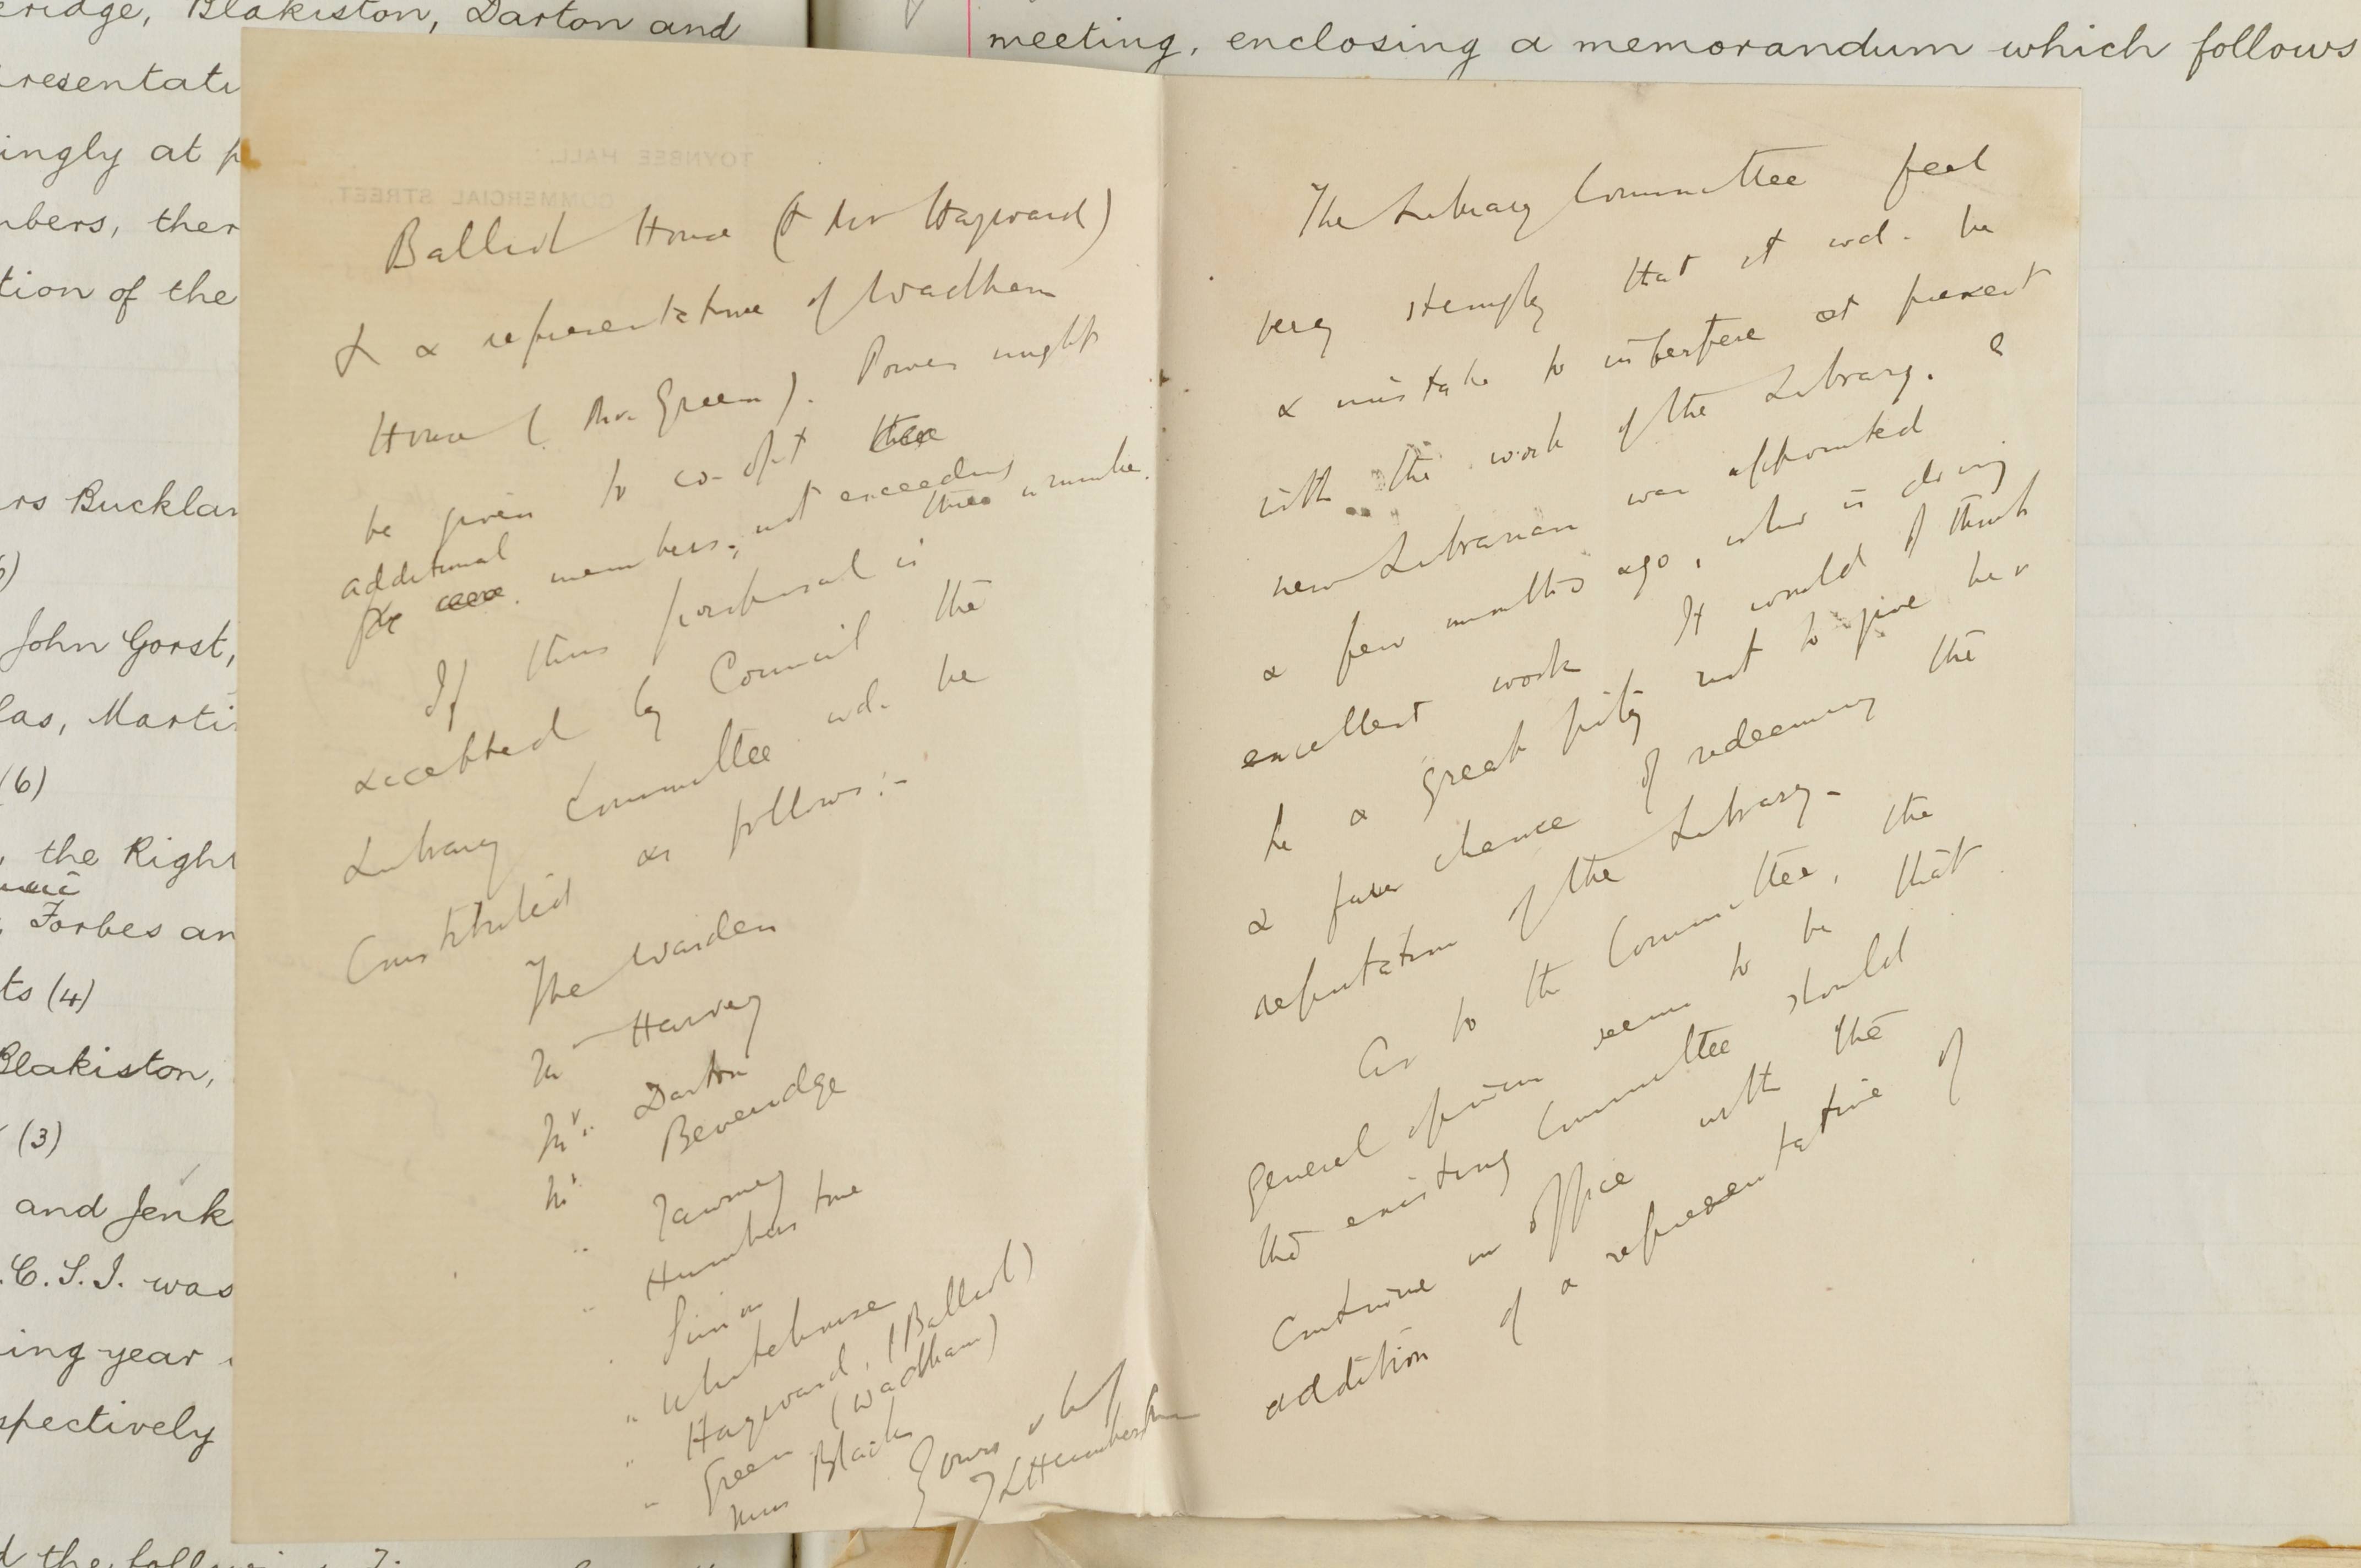 eridge, Blakiston, Darton and
resentati
ingly at p
nbers, ther
tion of the
rs Bucklan
John Gorst,
las, Marti
(6)
, the Right
Forbes an
ts (4)
Blakiston,
(3)
and Jenk
.C.S.I. was
ing year
spectively
d the follow
meeting, enclosing a memorandum which follows
TOYNBEE HALL.
COMMERCIAL STREET.
Balliol House (Mr Hayward)
& a representative of Wadham
House (Mr. Green). Power might
be given to co-opt three
additional
members, not exceeding
three in number.
If this proposal is
accepted by Council the
Library Committee wd. be
Constituted as follows:-
The Warden
Mr Harvey
Mr. Darton
Mr. Beveridge
" Tawney
" Humberstone
" Simon
" Whitehouse
" Hayward, (Balliol)
" Green (Wadham)
Miss Black
Yours
T L Humberstone
The Library Committee feel
very strongly that it wd. be
a mistake to interfere at present
with the work of the Library. A
new Librarian was appointed
a few months ago, who is doing
excellent work It would I think
be a great pity not to give her
a fair chance of redeeming the
reputation of the Library.
As to the Committee, the
general opinion seems to be that
the existing Committee should
Continue in office with the
addition of a representative of